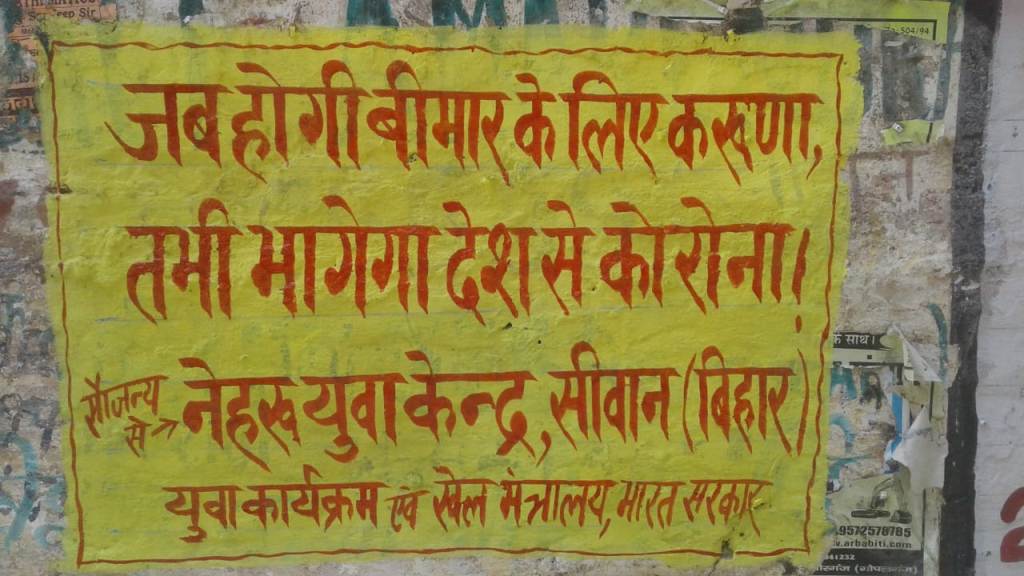 Sir
504/94
जब होगी बीमार के लिए करूणा,
तभी भागेगा देश से कोरोना।
साथ।
सौजन्य से→ नेहरू युवा केन्द्र, सीवान (बिहार)
युवा कार्यक्रम एवं खेल मंत्रालय, भारत सरकार
9572578785
.arbabiti.com
841232